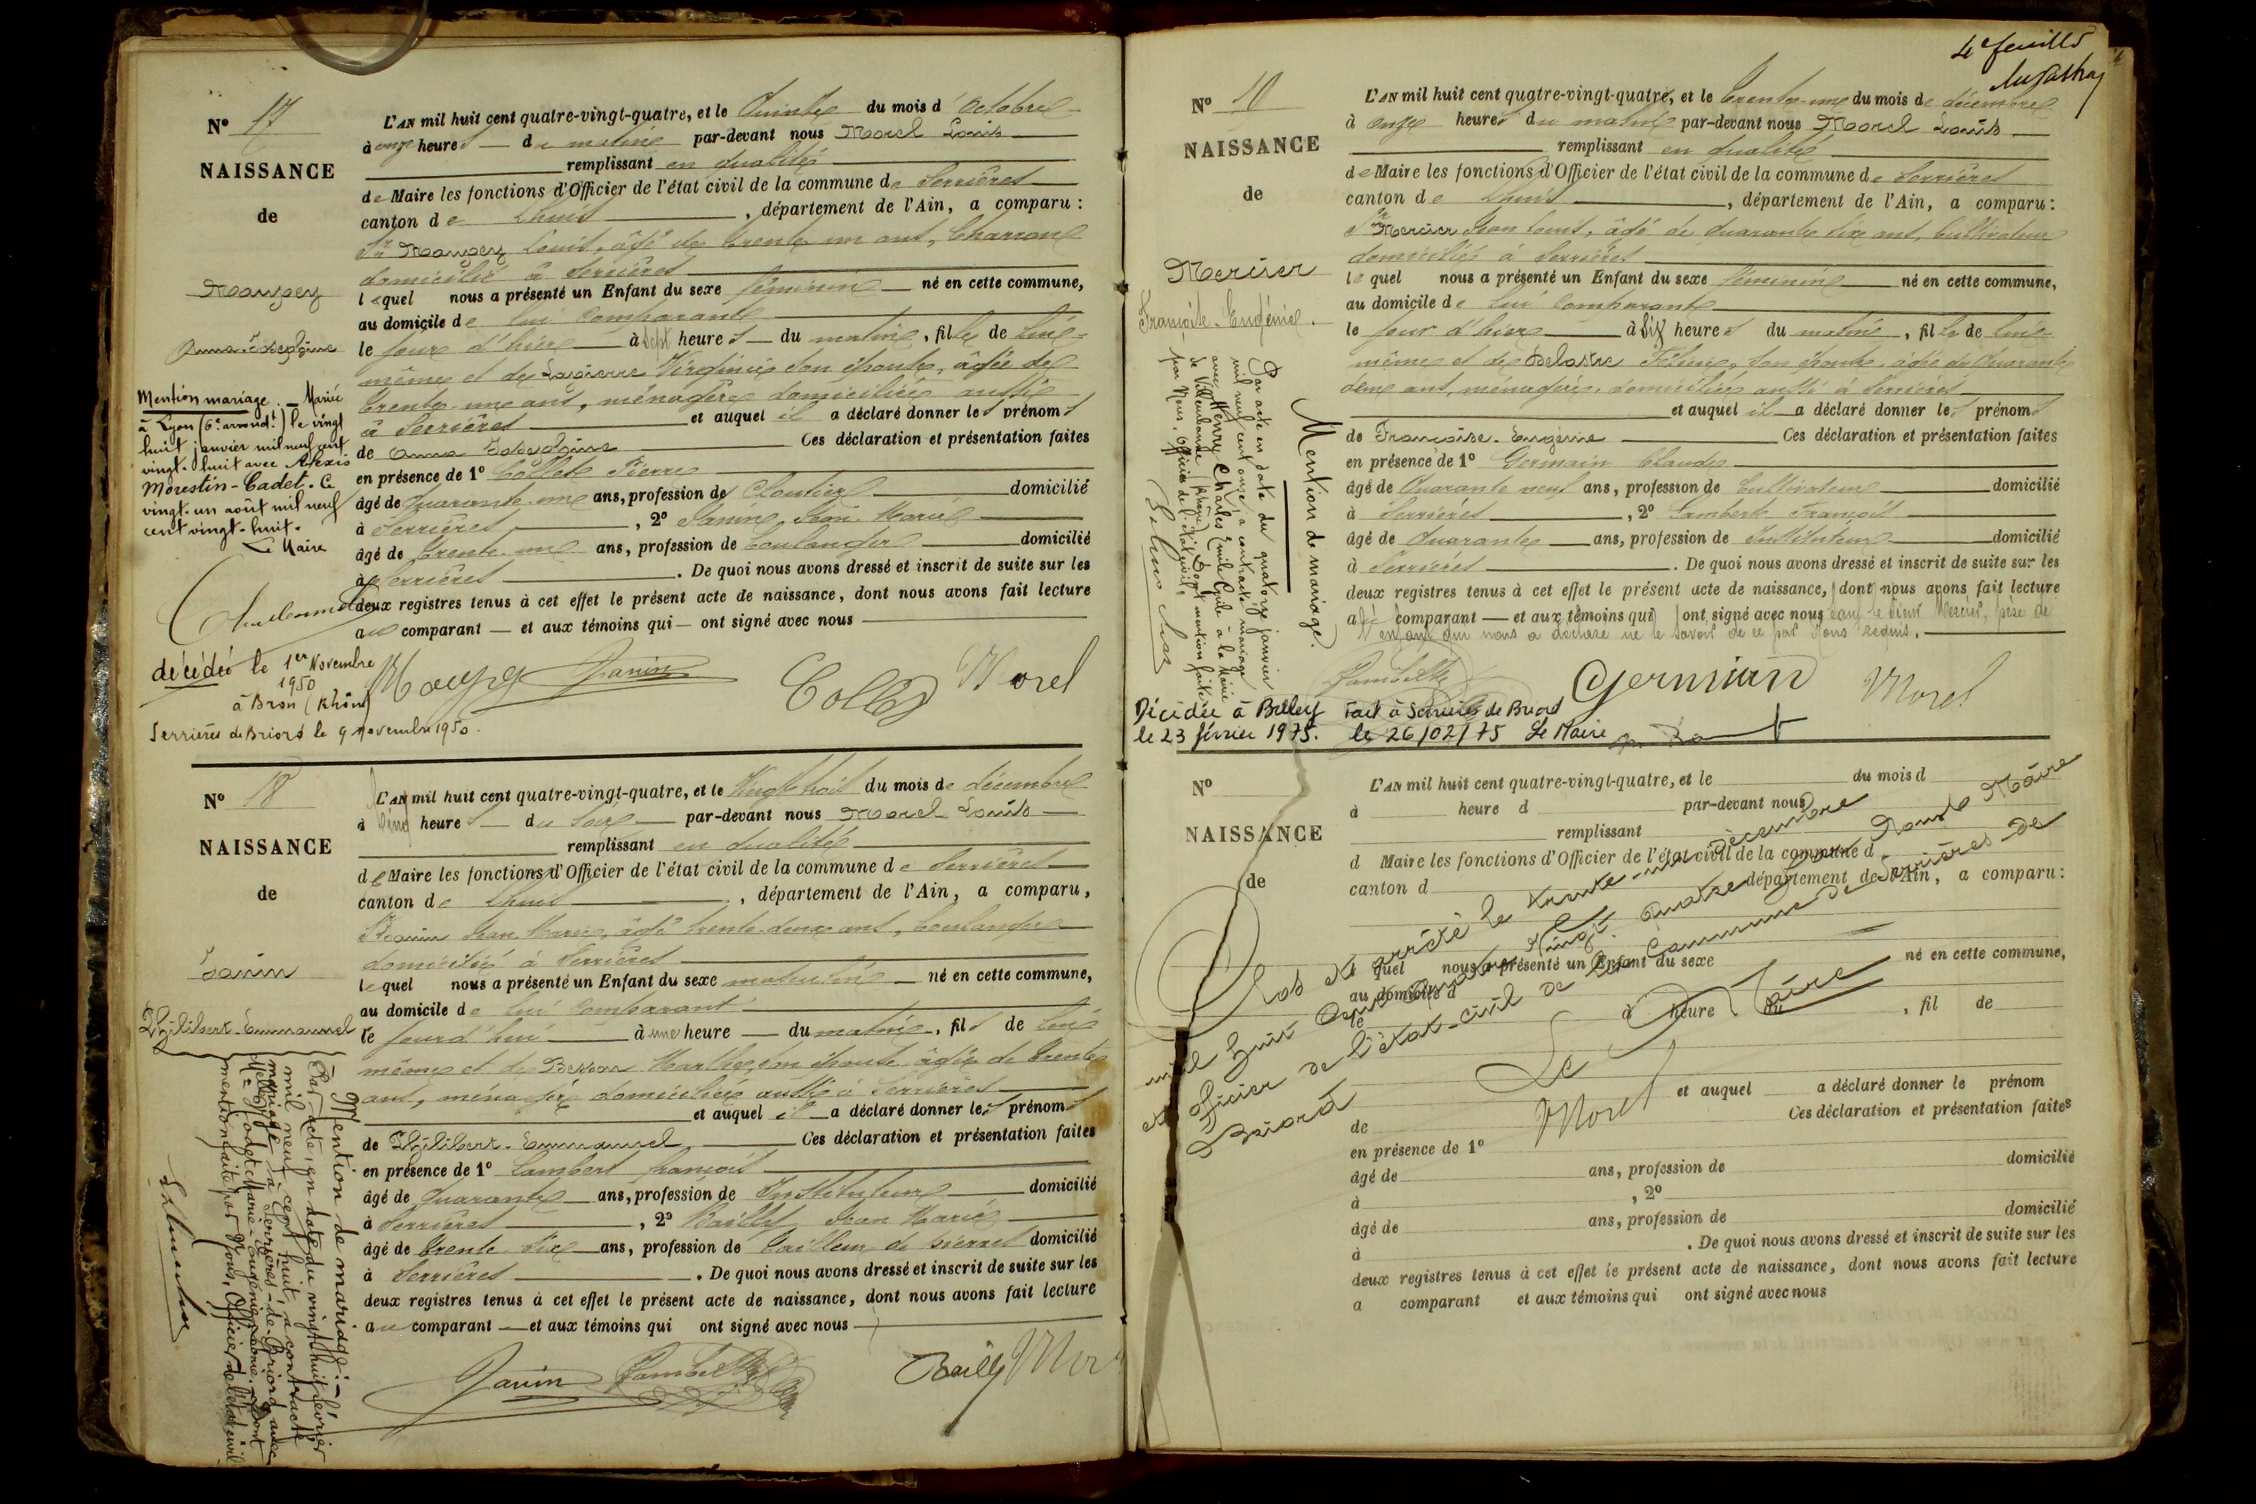 N° 17
NAISSANCE
de
Maugey
Anna-Joséphine
Mention mariage. — Mariée
à Lyon (6e arrondt) le vingt
huit janvier mil neuf cent
vingt-huit avec Alexis
Morestin-Cadet. Ce
vingt-un août mil neuf
cent vingt-huit.
Le Maire
décédée le 1er Novembre
1950
à Bron (Rhône)
Serrières de Briord le 9 novembre 1950.
L'AN mil huit cent quatre-vingt-quatre, et le Quinze du mois d'octobre
à onze heures du matin par-devant nous Morel Louis
remplissant en qualité
de Maire les fonctions d'Officier de l'état civil de la commune de Serrières
canton de Lhuis, département de l'Ain, a comparu :
Sr Maugey Louis, âgé de trente un ans, Charron
domicilié à Serrières
lequel nous a présenté un Enfant du sexe féminin né en cette commune,
au domicile de lui comparant
le jour d'hier à sept heures du matin, fille de lui-
même et de Virginie son épouse, âgée de
trente-un ans, ménagère domiciliée aussi
à Serrières et auquel il a déclaré donner les prénoms
de Anna Joséphine Ces déclaration et présentation faites
en présence de 1° Collet Pierre
âgé de quarante-un ans, profession de Cloutier domicilié
à Serrières, 2° Janin Jean Marie
âgé de trente-un ans, profession de boulanger domicilié
à Serrières. De quoi nous avons dressé et inscrit de suite sur les
deux registres tenus à cet effet le présent acte de naissance, dont nous avons fait lecture
au comparant et aux témoins qui ont signé avec nous
Maugey Janin Collet Morel
N° 18
NAISSANCE
de
Janin
Philibert-Emmanuel
Mention de mariage :-
Par acte, en date du vingt huit février
mil neuf cent huit, a contracté
mariage à Serrières-de-Briord avec
mention faite par Nous, Officier de l'état civil
L'AN mil huit cent quatre-vingt-quatre, et le Vingt huit du mois de décembre
à cinq heures du soir par-devant nous Morel Louis
remplissant en qualité
de Maire les fonctions d'Officier de l'état civil de la commune de Serrières
canton de Lhuis, département de l'Ain, a comparu,
Sr Janin Jean Marie, âgé trente-deux ans, boulanger
domicilié à Serrières
lequel nous a présenté un Enfant du sexe masculin né en cette commune,
au domicile de lui comparant
le jour d'hui à une heure du matin, fils de lui
même et de Marthe, son épouse âgée de trente
ans, ménagère domiciliée aussi à Serrières
et auquel il a déclaré donner les prénoms
de Philibert-Emmanuel Ces déclaration et présentation faites
en présence de 1° Lambert françois
âgé de quarante ans, profession de Instituteur domicilié
à Serrières, 2° Bailly Jean Marie
âgé de trente six ans, profession de tailleur de pierres domicilié
à Serrières. De quoi nous avons dressé et inscrit de suite sur les
deux registres tenus à cet effet le présent acte de naissance, dont nous avons fait lecture
au comparant et aux témoins qui ont signé avec nous
Janin Lambert Bailly Morel
4e feuille
N° 19
NAISSANCE
de
Mercier
Françoise-Eugénie.
Mention de mariage.
Par acte en date du quatorze janvier
mil neuf cent onze, a contracté mariage
avec Henry Charles Emile à la Mairie
de Villeurbanne (Rhône), Dont mention faite
par Nous, Officier de l'état civil.
Décédée à Belley
le 23 février 1975.
Fait à Serrières de Briord
le 26/02/75 Le Maire
L'AN mil huit cent quatre-vingt-quatre, et le trente-un du mois de décembre
à onze heures du matin par-devant nous Morel Louis
remplissant en qualité
de Maire les fonctions d'Officier de l'état civil de la commune de Serrières
canton de Lhuis, département de l'Ain, a comparu :
Sr Mercier Jean Louis, âgé de quarante six ans, cultivateur
domicilié à Serrières
lequel nous a présenté un Enfant du sexe féminin né en cette commune,
au domicile de lui comparant
le jour d'hier à six heures du matin, fille de lui-
même et de son épouse, âgée de quarante
ans, ménagère, domiciliée aussi à Serrières
et auquel il a déclaré donner les prénoms
de Françoise-Eugénie Ces déclaration et présentation faites
en présence de 1° Germain Claude
âgé de Quarante neuf ans, profession de Cultivateur domicilié
à Serrières, 2° Lambert François
âgé de Quarante ans, profession de Instituteur domicilié
à Serrières. De quoi nous avons dressé et inscrit de suite sur les
deux registres tenus à cet effet le présent acte de naissance, dont nous avons fait lecture
au comparant et aux témoins qui ont signé avec nous sauf le sieur Mercier, père de
l'enfant qui nous a déclaré ne le savoir de ce par nous requis.
Lambert Germain Morel
N°
NAISSANCE
de
L'AN mil huit cent quatre-vingt-quatre, et le du mois d
à heure d par-devant nous
remplissant
d Maire les fonctions d'Officier de l'état civil de la commune d
canton d département de l'Ain, a comparu :
l quel nous a présenté un Enfant du sexe né en cette commune,
au domicile d
le à heure du , fil de
et auquel a déclaré donner le prénom
de Ces déclaration et présentation faites
en présence de 1°
âgé de ans, profession de domicilié
à , 2°
âgé de ans, profession de domicilié
à . De quoi nous avons dressé et inscrit de suite sur les
deux registres tenus à cet effet le présent acte de naissance, dont nous avons fait lecture
a comparant et aux témoins qui ont signé avec nous
Clos et arrêté le trente-un décembre
mil huit cent quatre vingt quatre par Nous Maire
et officier de l'état-civil de la Commune de Serrières de
Briord
Le Maire
Morel